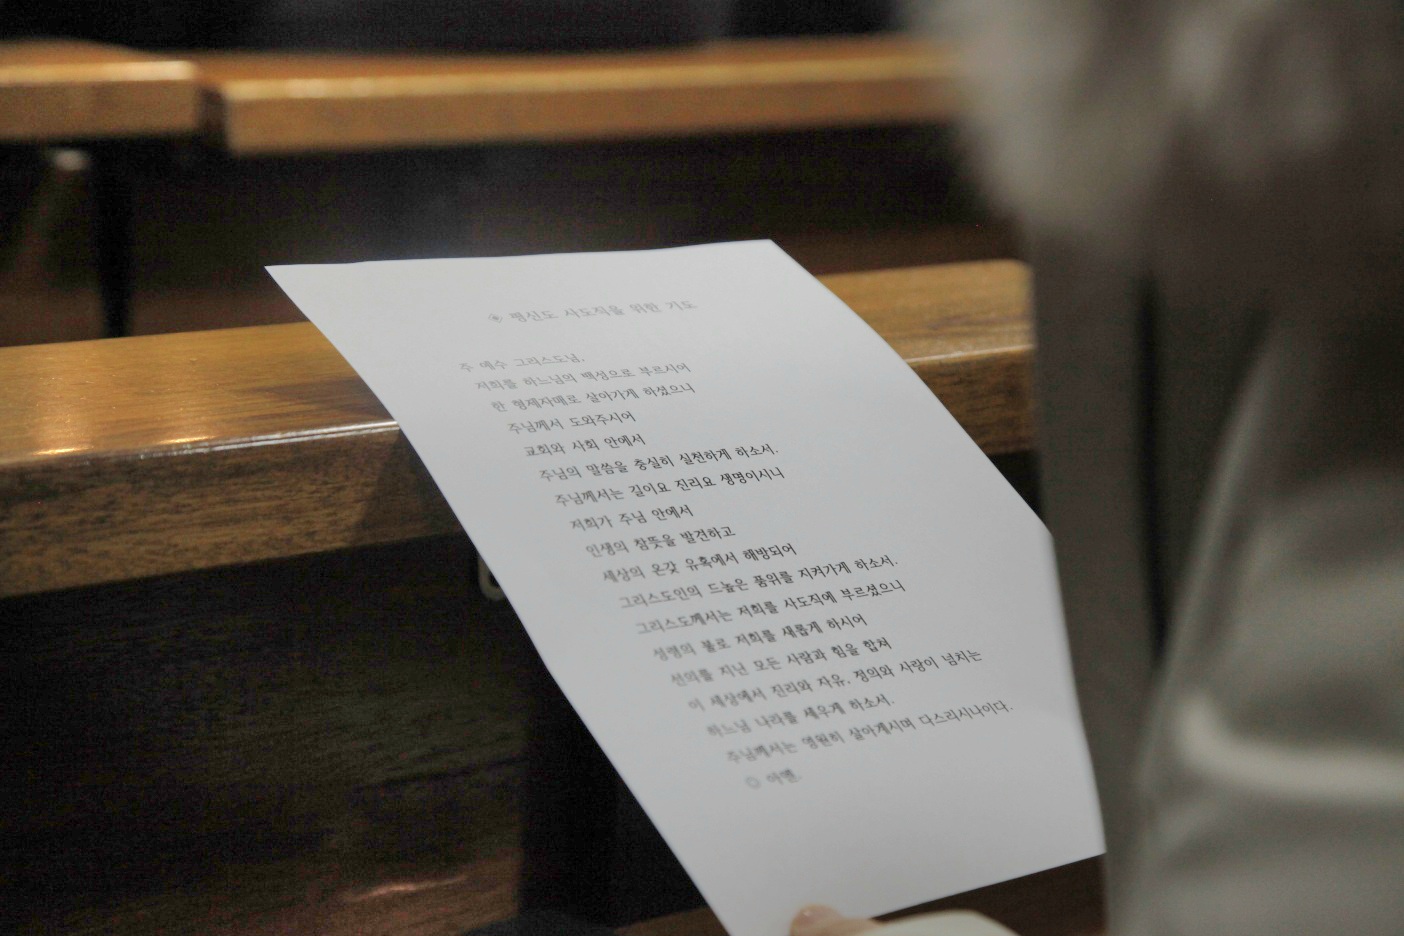 ※ 평신도 사도직을 위한 기도
주 예수 그리스도님,
저희를 하느님의 백성으로 부르시어
한 형제자매로 살아가게 하셨으니
주님께서 도와주시어
교회와 사회 안에서
주님의 말씀을 충실히 실천하게 하소서.
주님께서는 길이요 진리요 생명이시니
저희가 주님 안에서
인생의 참뜻을 발견하고
세상의 온갖 유혹에서 해방되어
그리스도인의 드높은 품위를 지켜가게 하소서.
그리스도께서는 저희를 사도직에 부르셨으니
성령의 불로 저희를 새롭게 하시어
선의를 지닌 모든 사람과 힘을 합쳐
이 세상에서 진리와 자유, 정의와 사랑이 넘치는
하느님 나라를 세우게 하소서.
주님께서는 영원히 살아계시며 다스리시나이다.
◎ 아멘.